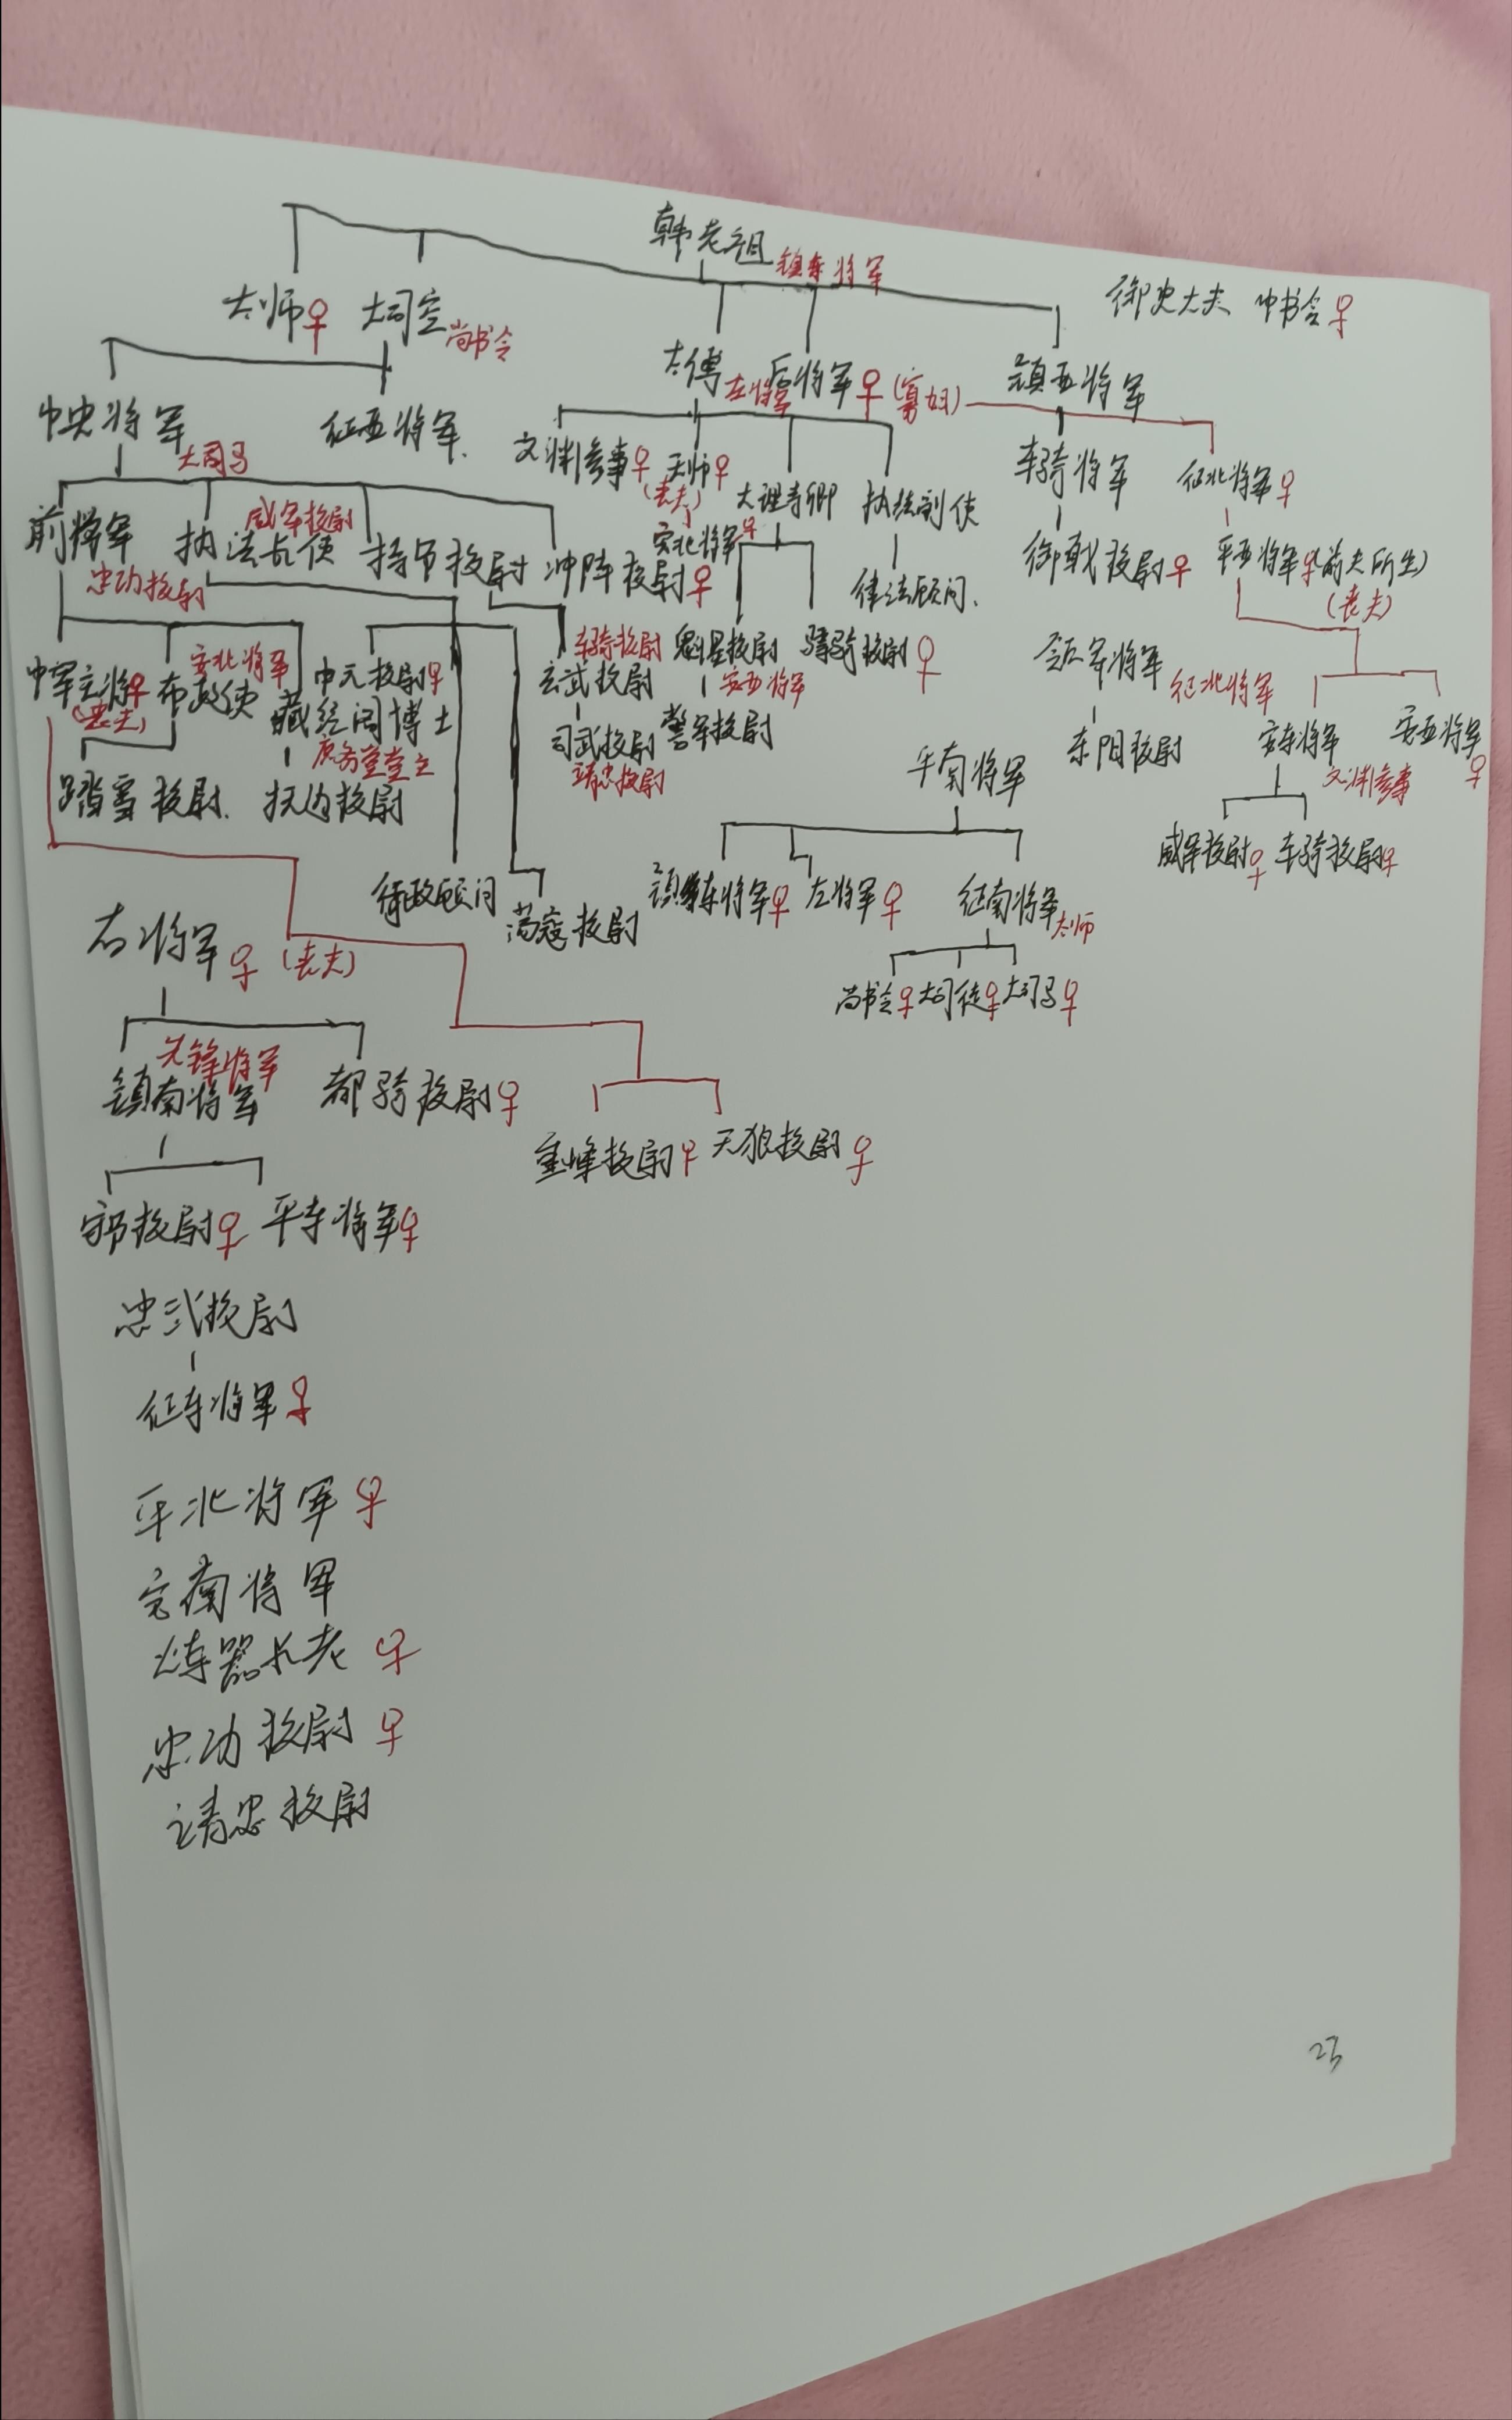 韩老祖 镇东将军
御史大夫 中书令♀
太师♀ 大司空 尚书令
太傅 左将军 后将军♀(寡妇) 镇西将军
中央将军 大司马 征西将军
文渊参事♀ 天师♀ (丧夫) 大理寺卿 执法副使
车骑将军 征北将军♀
前将军 忠功校尉 执法右使 威军校尉 持节校尉 冲阵校尉♀
安北将军♀ 律法顾问
御戟校尉♀ 平西将军♀(前夫所生) (丧夫)
中军主将♀ (丧夫) 布政使 安北将军 中元校尉♀
藏经阁博士 庶务堂堂主
玄武校尉 车骑校尉 魁星校尉 安西将军 骠骑校尉♀
领军将军 征北将军
踏雪校尉 抚边校尉
司武校尉 靖忠校尉 警军校尉
东阳校尉 安东将军 文渊参事 安西将军♀
平南将军
威军校尉♀ 车骑校尉♀
律政顾问 荡寇校尉
镇东将军♀ 左将军♀ 征南将军 太师
尚书令♀ 大司徒♀ 大司马♀
右将军♀ (丧夫)
镇南将军 先锋将军 都骑校尉♀
重峰校尉♀ 天狼校尉♀
校尉♀ 平东将军♀
忠武校尉
征东将军♀
平北将军♀
定南将军
炼器长老♀
忠功校尉♀
靖忠校尉
23